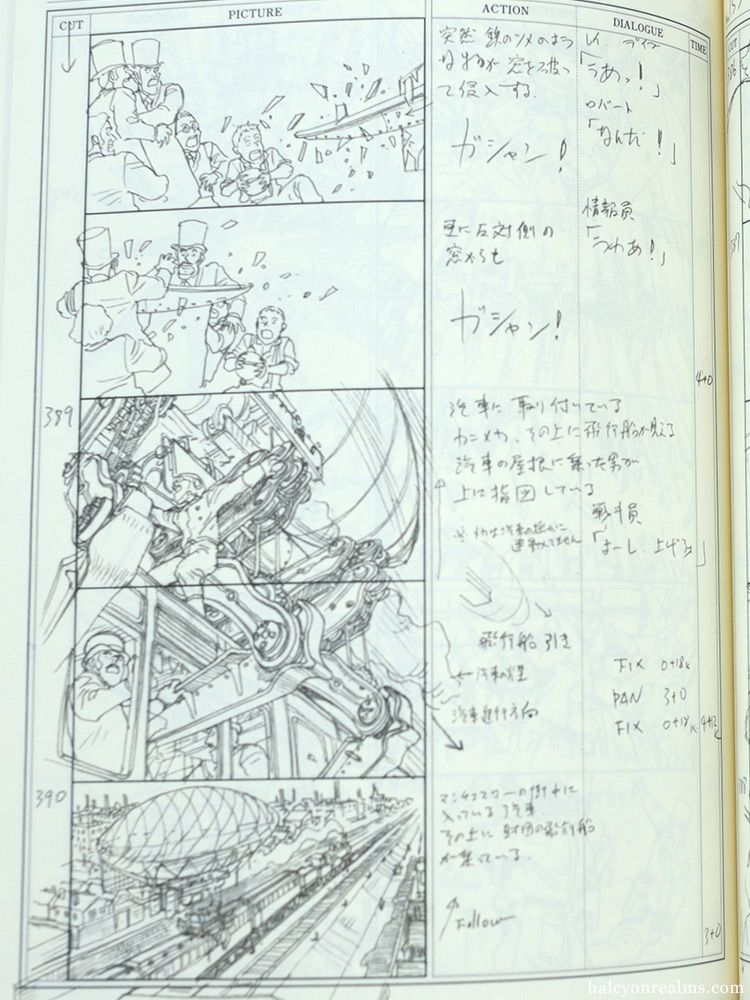 CUT PICTURE ACTION DIALOGUE TIME
突然 鉄のツメのよう
な物が 窓を破っ
て侵入する.
ガシャン!
レイ. デイブ
「うあっ!」
ロバート
「なんだ!」
更に反対側の
窓からも
ガシャン!
情報員
「うわあ!」
4+0
389
汽車に 取り付いている
カニメカ、その上に飛行船が見える
汽車の屋根に乗った男が
上に指図している
戦斗員
「よーし 上げろ」
飛行船 引き
←汽車の煙
汽車進行方向
FIX 0+18K
PAN 3+0
FIX 0+18K 4+12K
390
マンチェスターの街中に
入っている汽車
その上に 財団の飛行船
が乗っている.
Follow
3+0
halcyonrealms.com